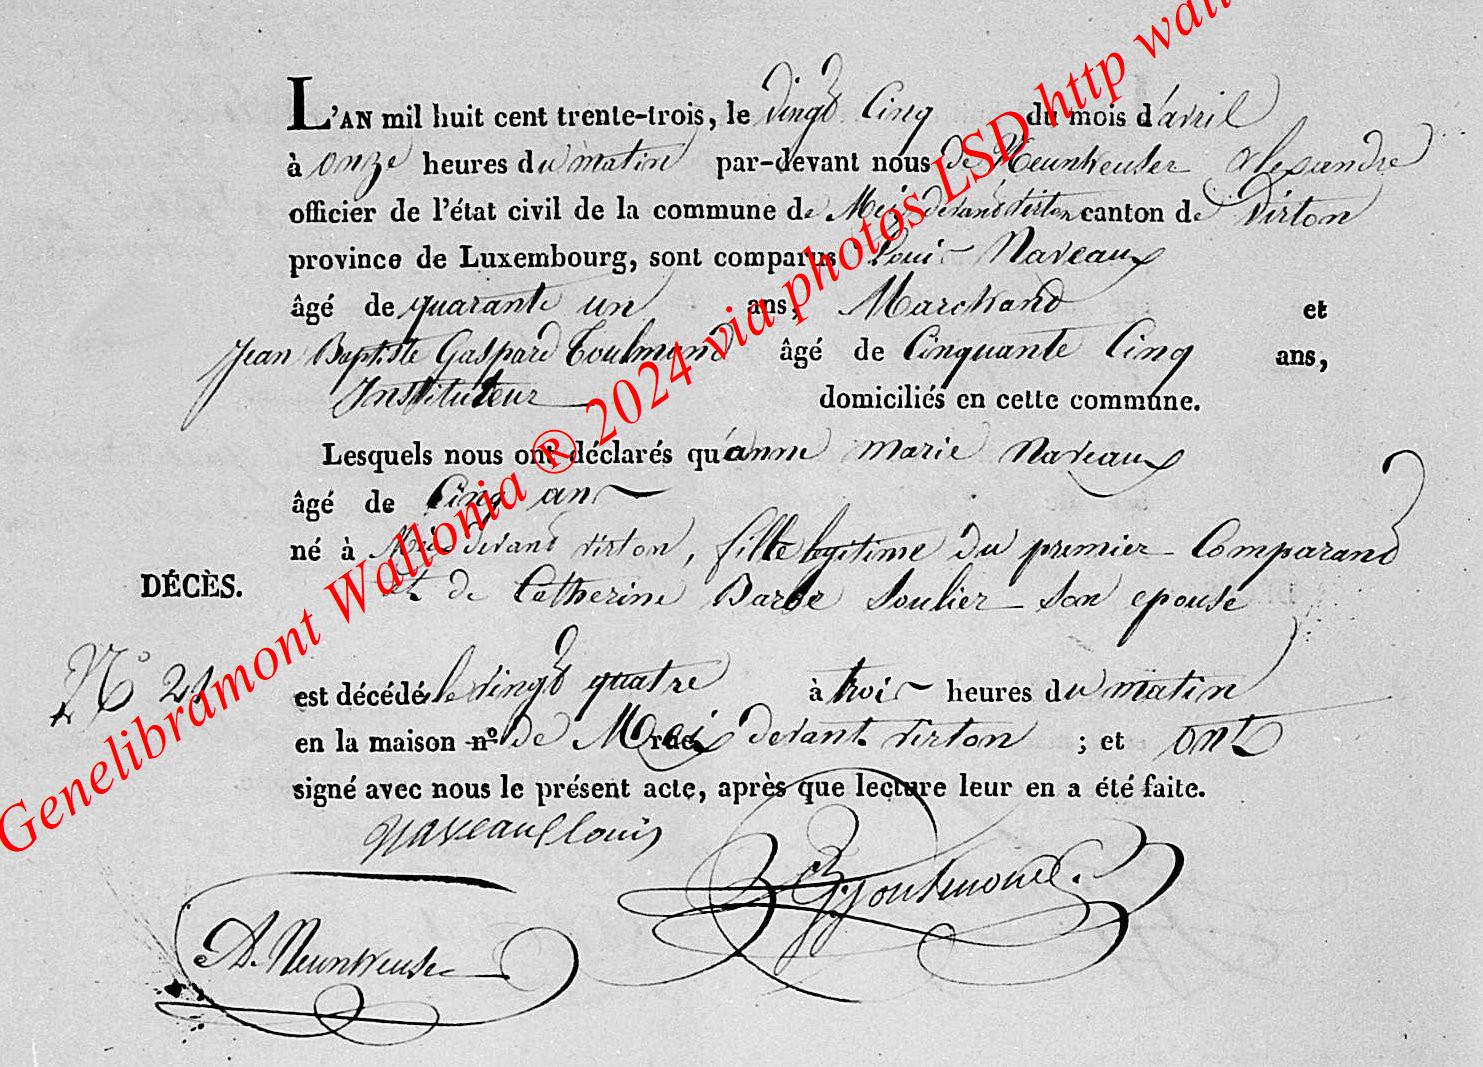 L'AN mil huit cent trente-trois, le vingt Cinq du mois d'avril
à onze heures du matin par-devant nous de Neunheuser alexandre
officier de l'état civil de la commune de Meix devant virton canton de Virton
province de Luxembourg, sont comparus Louis Naveaux
âgé de quarante un ans, Marchand et
Jean Baptiste Gaspard Toulmond âgé de Cinquante Cinq ans,
Instituteur domiciliés en cette commune.
Lesquels nous ont déclarés qu'anne marie Naveaux
âgé de Cinq ans
né à Meix devant virton, fille legitime du premier Comparand
DÉCÈS. et de Catherine Barbe Soulier son epouse
N° 21 est décédé le vingt quatre à trois heures du matin
en la maison n° de Meix rue devant virton ; et ont
signé avec nous le présent acte, après que lecture leur en a été faite.
Naveaux louis
G. Toulmond.
A. Neunheuser
Genelibramont Wallonia ® 2024 via photos LSD http wall